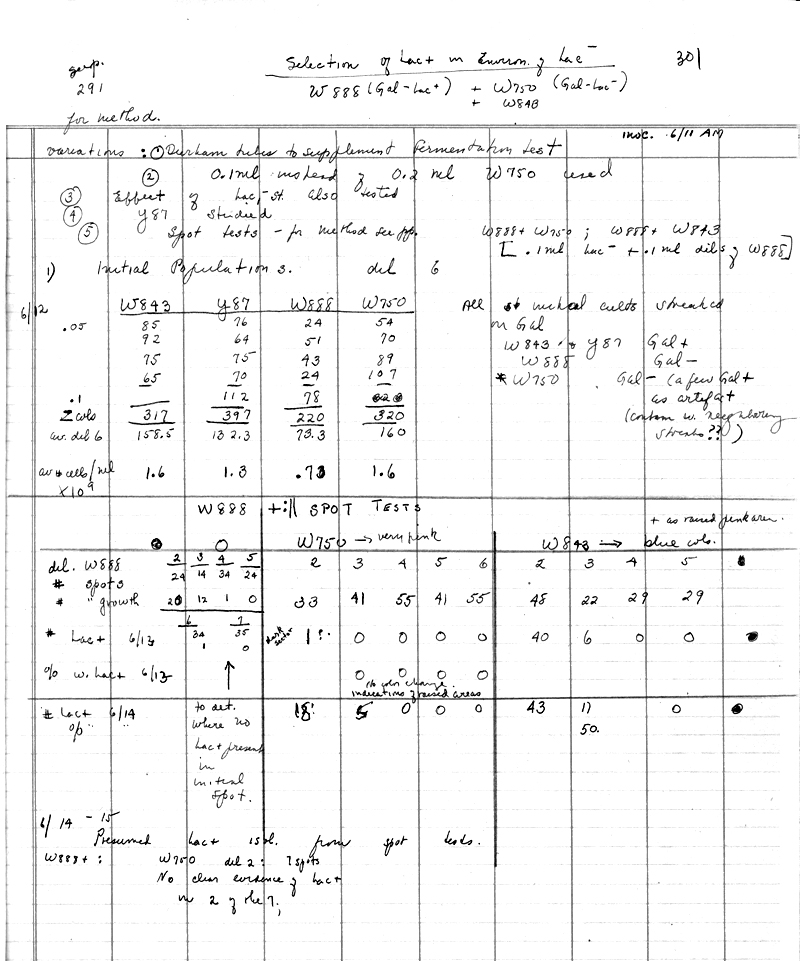 Selection of Lac+ in Environ. of Lac-
301
supp.
291
for method.
W888 (Gal-Lac+) + W750 (Gal-Lac-)
+ W843
inoc. 6/11 AM
variations: ① Durham tubes to supplement Fermentation test
② 0.1 ml instead of 0.2 ml W750 used
③ Effect of Lac, st. also tested
④ Y87 studied
⑤ Spot tests - for method see pp. W888 + W750 ; W888 + W843
[ .1 ml Lac- + .1 ml dils of W888 ]
1) Initial Populations. del 6
6/12 W843 Y87 W888 W750
.05 85 76 24 54
92 64 51 70
75 75 43 89
65 70 24 107
.1 112 78
Σ cols 317 397 220 320
av. del 6 158.5 132.3 73.3 160
av # cells/ml 1.6 1.3 .73 1.6
X10⁹
All cults streaked
on Gal
W843 & Y87 Gal+
W888 Gal-
* W750 Gal- (a few Gal+
as artefact
(contam w. neighboring
streaks??)
W888 +:|| SPOT TESTS
+ as raised pink area.
W750 → very pink
W843 → blue cols.
del. W888 2 3 4 5 2 3 4 5 6 2 3 4 5
# spots 24 14 34 24
# " growth 20 12 1 0 33 41 55 41 55 48 22 29 29
6 7
34 35
1 0
# Lac+ 6/13 dark sector 1?. 0 0 0 0 40 6 0 0
% w. Lac+ 6/13 0 0 0 0
No color change.
indications of raised areas
# Lac+ 6/14 18! 5 0 0 0 43 11 0
% " " 50.
to det.
where no
Lac+ present
in
initial
spot.
6/14 - 15
Presumed Lac+ isol. from spot tests.
W888+ : W750 del 2: 7 spots
No clear evidence of Lac+
in 2 of the 7,